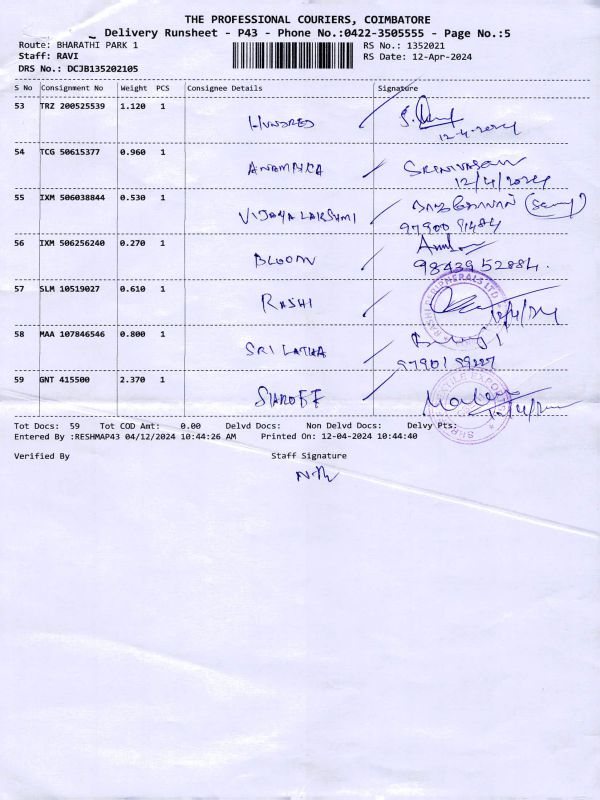 THE PROFESSIONAL COURIERS, COIMBATORE
Delivery Runsheet - P43 - Phone No.:0422-3505555 - Page No.:5
Route: BHARATHI PARK 1 RS No.: 1352021
Staff: RAVI RS Date: 12-Apr-2024
DRS No.: DCJB135202105
S No Consignment No Weight PCS Consignee Details Signature
53 TRZ 200525539 1.120 1 HUNDRED
12-4-2024
54 TCG 50615377 0.960 1 ANAMIKA SRINIVASAN
12/4/2024
55 IXM 506038844 0.530 1 VIJAYALAKSHMI
56 IXM 506256240 0.270 1 BLOOM
98439 52884.
57 SLM 10519027 0.610 1 RASHI 12/4/24
58 MAA 107846546 0.800 1 SRI LATHA
59 GNT 415500 2.370 1
Tot Docs: 59 Tot COD Amt: 0.00 Delvd Docs: Non Delvd Docs: Delvy Pts:
Entered By :RESHMAP43 04/12/2024 10:44:26 AM Printed On: 12-04-2024 10:44:40
Verified By Staff Signature